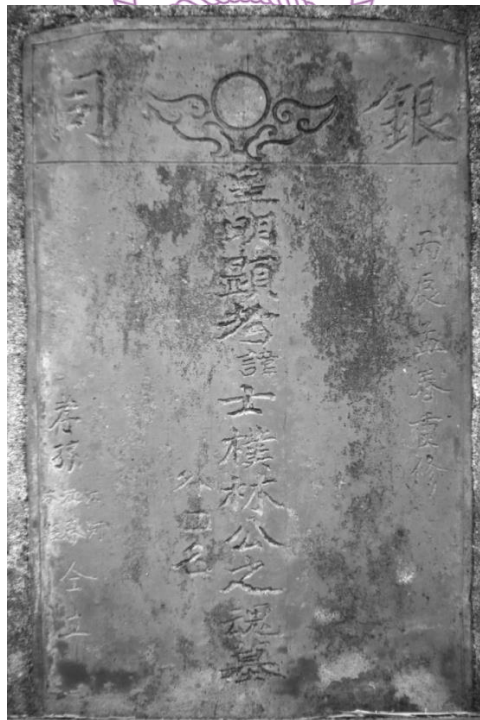 銀同
丙辰孟春重修
皇明顯考諱士樸林公之魂墓
外四名
孝孫
仝立